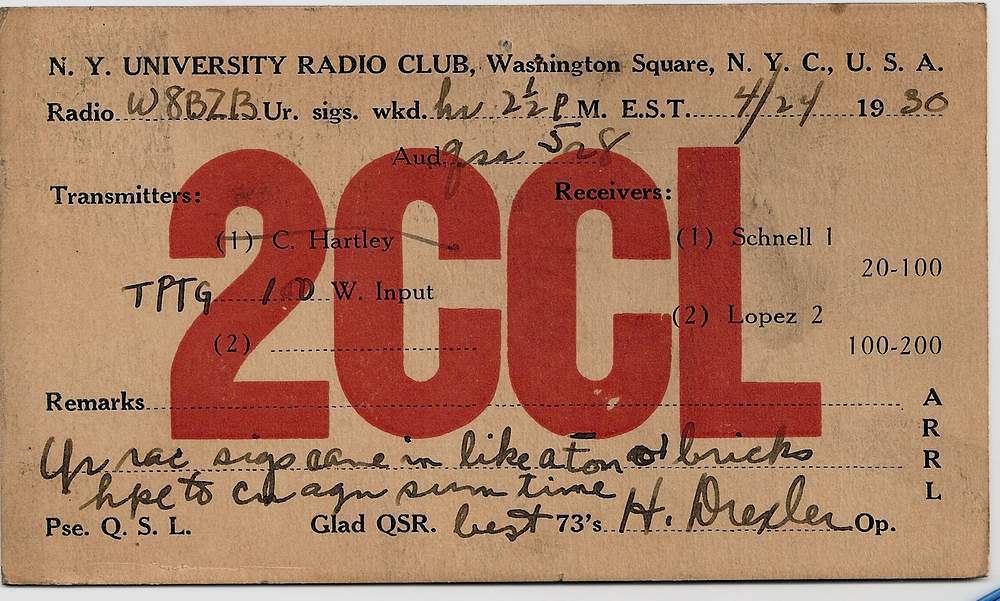 N. Y. UNIVERSITY RADIO CLUB, Washington Square, N. Y. C., U. S. A.
Radio W8BZB Ur. sigs. wkd. hr 2½ P M. E.S.T. 4/24 19 30
Aud. qss 5 r8
2CCL
Transmitters: Receivers:
(1) C. Hartley (1) Schnell 1
20-100
TPTG 10 W. Input
(2) Lopez 2
(2)
100-200
Remarks
A R R L
Ur rac sigs came in like a ton of bricks
hpe to cu agn sum time
Pse. Q. S. L. Glad QSR. best 73's H. Drexler Op.